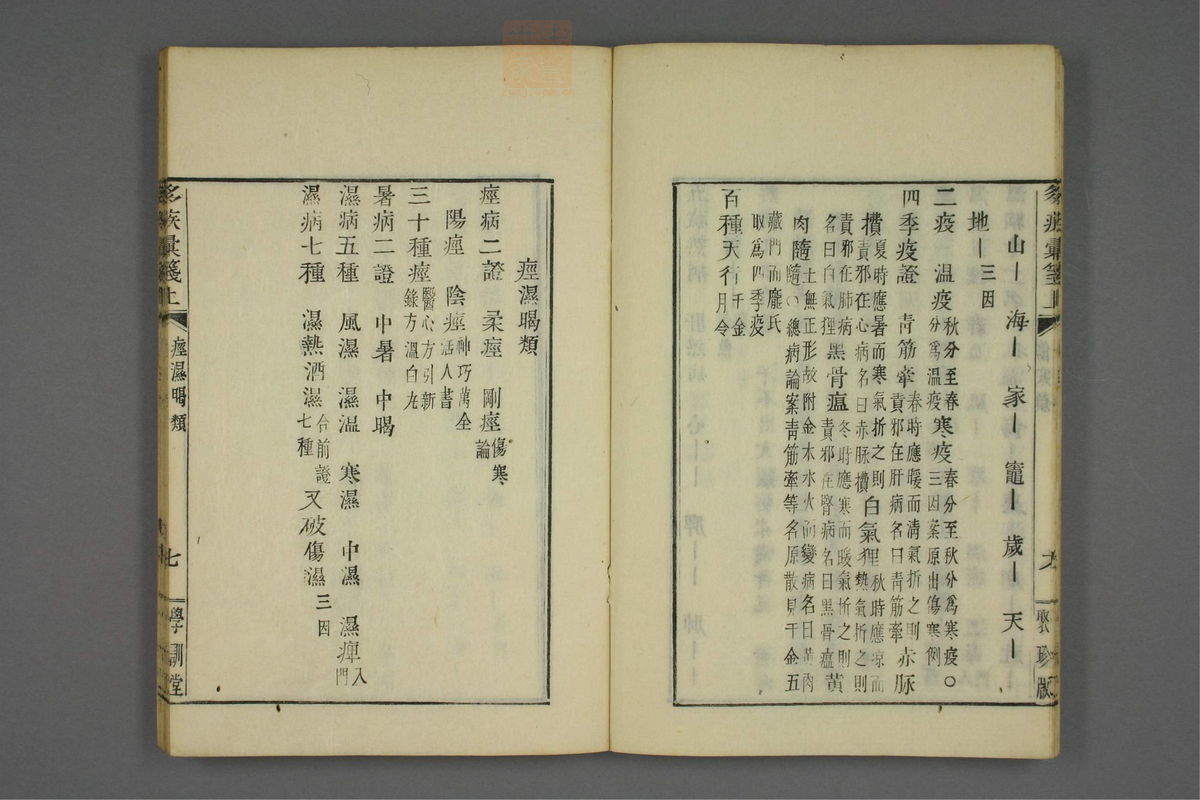 名疾彙箋上 六 聚珍版
山｜海｜家｜竈｜歲｜天｜
地｜三因
二疫 温疫秋分至春分爲温疫寒疫春分至秋分爲寒疫○三因案原出傷寒例
四季疫證 青筋牽春時應暖而清氣折之則責邪在肝病名曰青筋牽赤脉
攢夏時應暑而寒氣折之則責邪在心病名曰赤脉攢白氣狸秋時應凉而熱氣折之則
責邪在肺病名曰白氣狸黑骨瘟冬時應寒而暖氣折之則責邪在腎病名曰黑骨瘟黃
肉隨土無正形故附金木水火而變病名曰黃肉隨○總病論案青筋牽等名原散見千金五
藏門而龐氏取爲四季疫
百種天行千金月令
痙濕暍類
痙病二證 柔痙 剛痙傷寒論
陽痙 陰痙神巧萬全活人書
三十種痙醫心方引新錄方溫白丸
暑病二證 中暑 中暍
濕病五種 風濕 濕温 寒濕 中濕 濕痺入門
濕病七種 濕熱酒濕合前證七種又破傷濕三因
名疾彙箋上 痙濕暍類 七 學訓堂